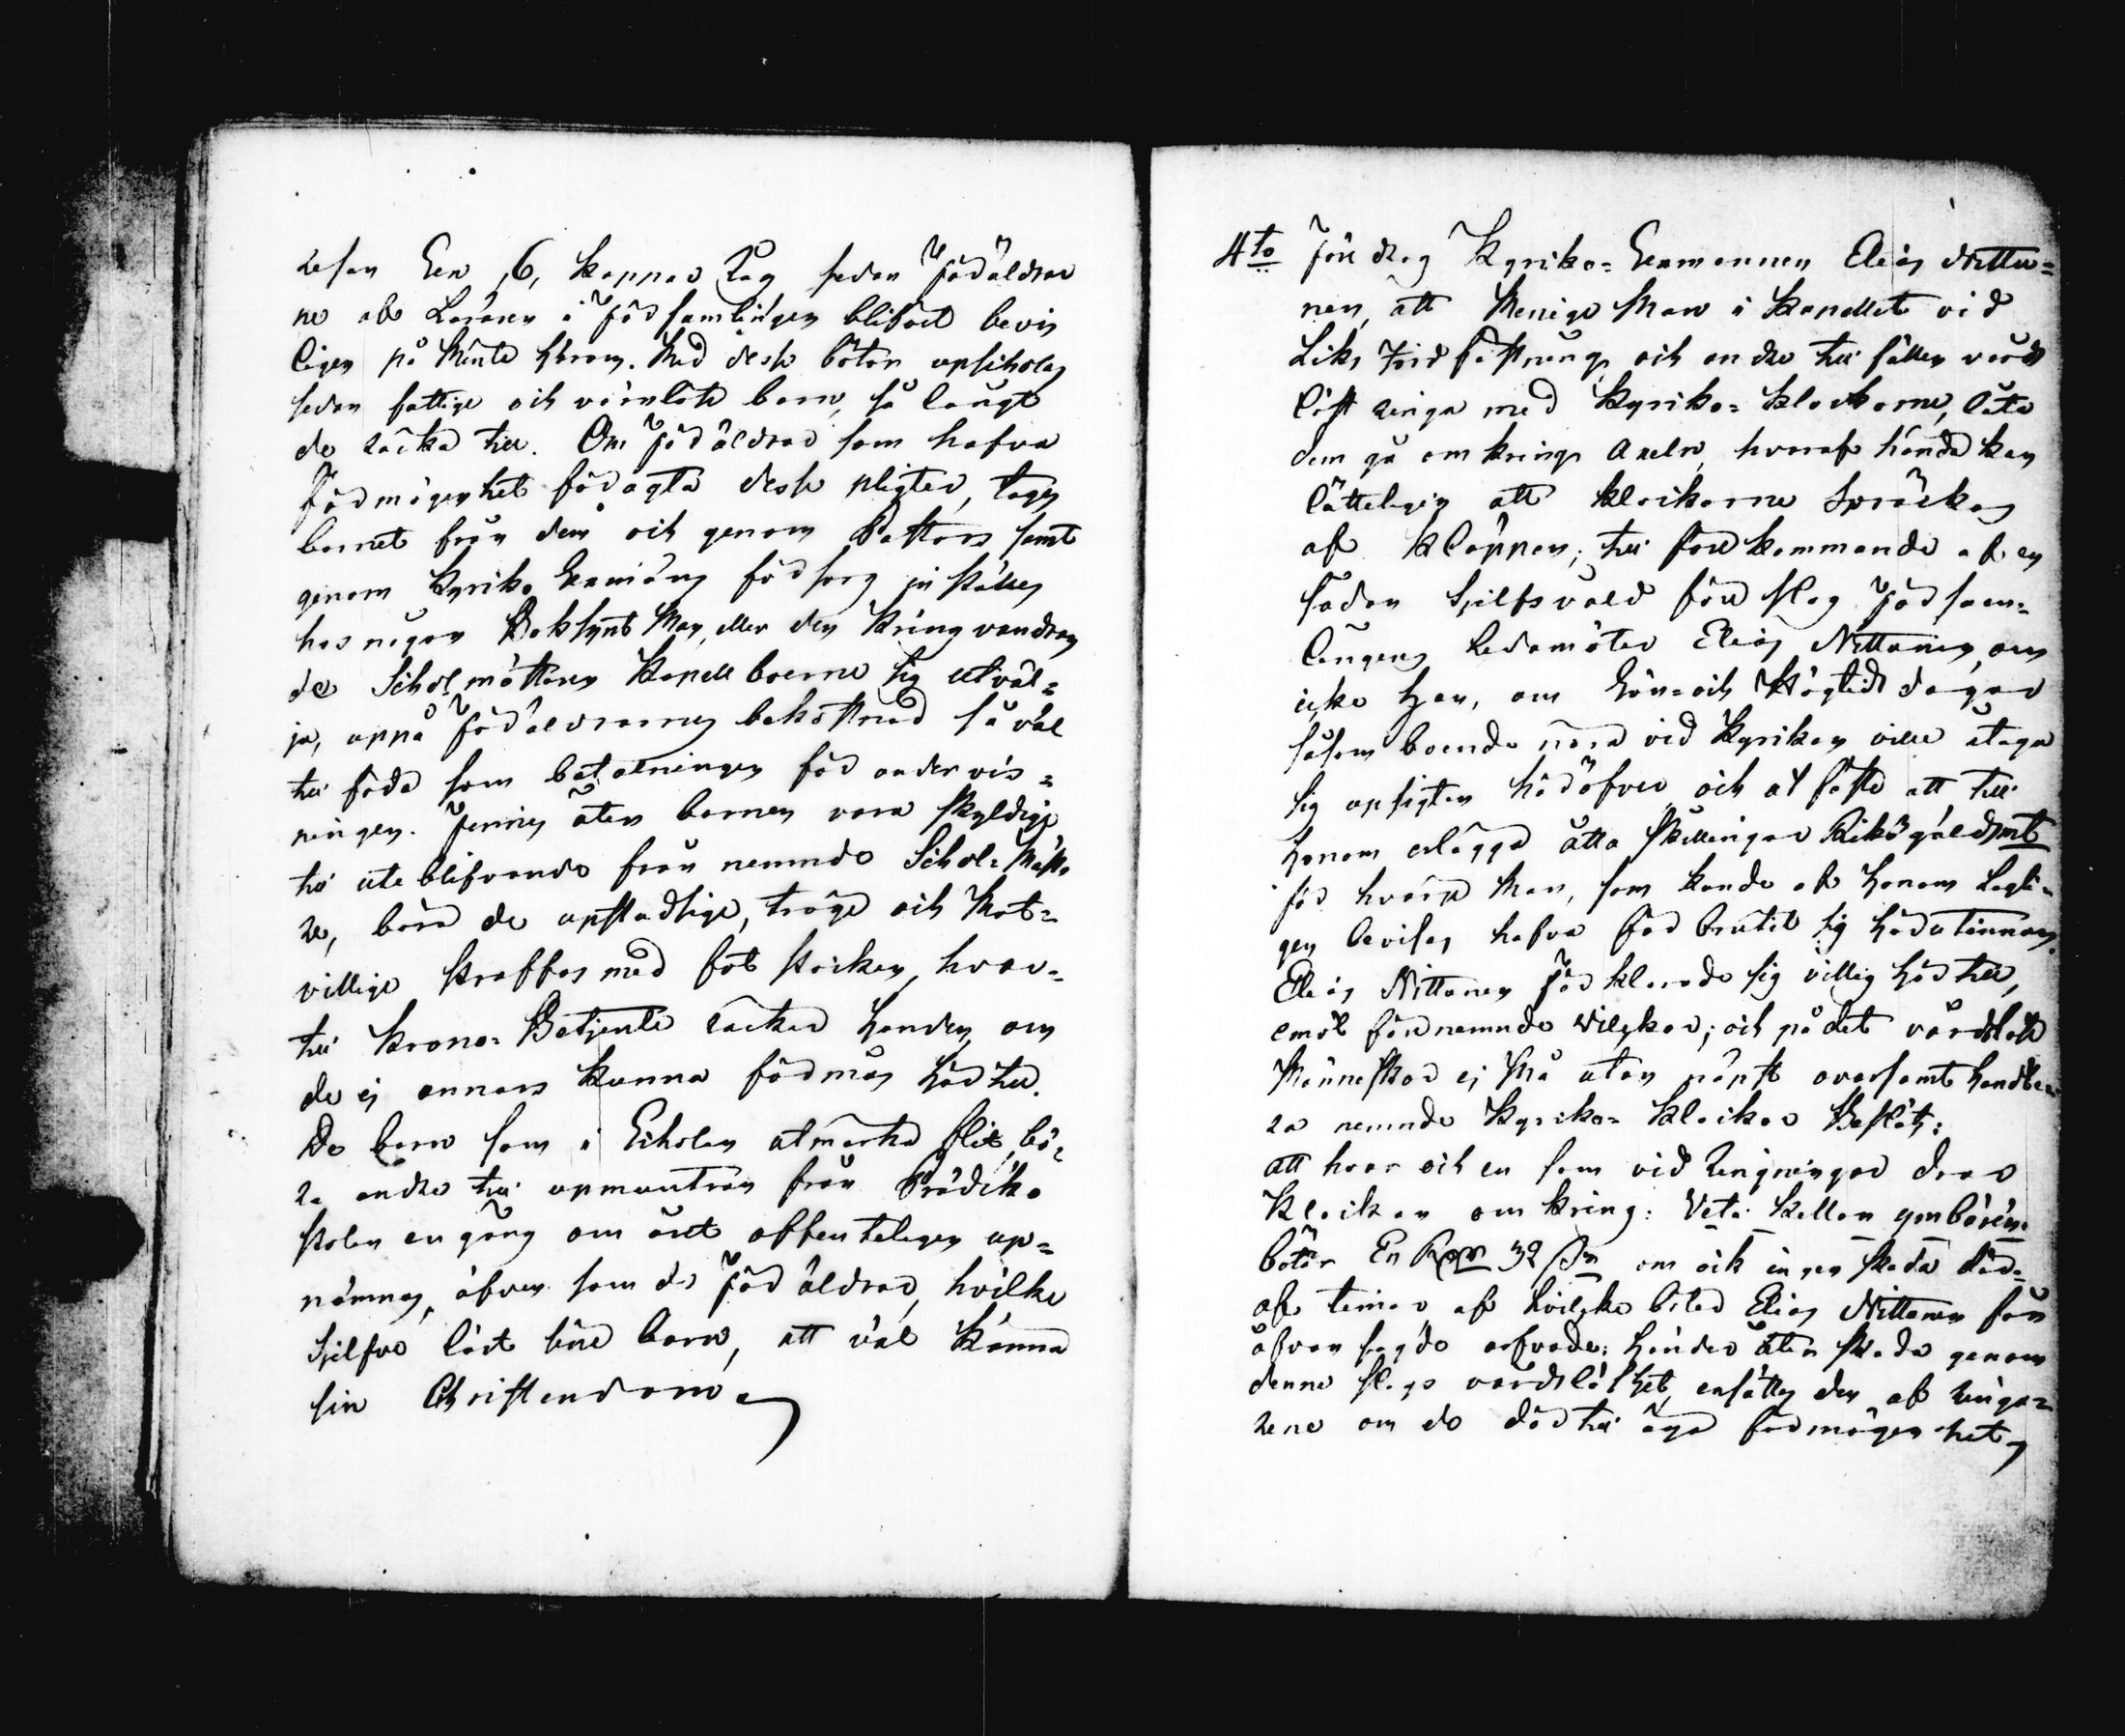 resan Een 6, Kappar Råg sedan Föräldrar
ne af Läraren i Församlingen blifvit bevis
ligen på minte härom. Med desse böter upscholas
sedan fattige och värnlöse barn, så långt
de räcka till. Om Föräldrar som hafva
Förmögenhet föragta desse pligter, tages
barnet från dem och genom Pastors samt
genom Kyrko Exmäns försorg in ställes
hos någon Boksynt Man, eller den Kringvandran
de Scholmästaren Kapellboerne sig utväl=
ja, uppå Föräldrarnes bekostnad så väl
till föda som betalningen för undervis=
ningen. Finnes åter barnen vara skyldige
till uteblifvande från nemnde Schol=Mästa
re, böra de upstudsige, tröge och Mot=
villige straffas med fot stocken, hvar=
till Krono=Betjente räcker handen, om
de ej annars kunna förmås härtill.
De barn som i Scholan utmärka flit, bö=
ra andre till upmuntran från Prädiko
stolen en gång om året offenteligen up=
nämnas, äfven som de Föräldrar, hvilke
Sjelfve lärt sine barn, att väl Känna
sin Christendom
4to Föredrog Kyrko=Exmannen Elias Nitta=
nen, att Menige Man i Kapellet vid
Liks Jordfästning och andre tillfällen vårds
löst ringa med Kyrko=Klockorne, låta
dem gå omkring Axeln, hvaraf hända kan
lätteligen att Klockorne spräckas
af Kläppen; till förekommande af en
sådan Sjelfsvåld föreslog Församm=
lingens Ledamöter Elias Nittanen, om
icke han, om Sön=och Högtids dagar
såsom boende nära vid Kyrkan ville åtaga
sig upsigten häröfver och utfäste att till
honom erlägga åtta Skillingar Riksgäldsmt
för hvarje Man, som kunde af honom Lagli=
gen bevisas hafva förbrutit sig härutinnan.
Elias Nittanen förklarade sig villig härtill,
emot förenemnde Vilkor; och på det vårdslöse
Menneskor ej må utan näpst ovarsamt handte
ra nemnde Kyrko=Klockor Beslöts:
att hvar och en som vid Ringningar drar
Klockan omkring: Vete
böter En 32 om ock ingen skada där=
af timar, af hvilka böter Elias Nittanen får
åfvansagde arfvode; händer åter skada genom
denne slags vårdslöshet, ersättes den af ringa=
rene om de därtill äga förmögenhet,